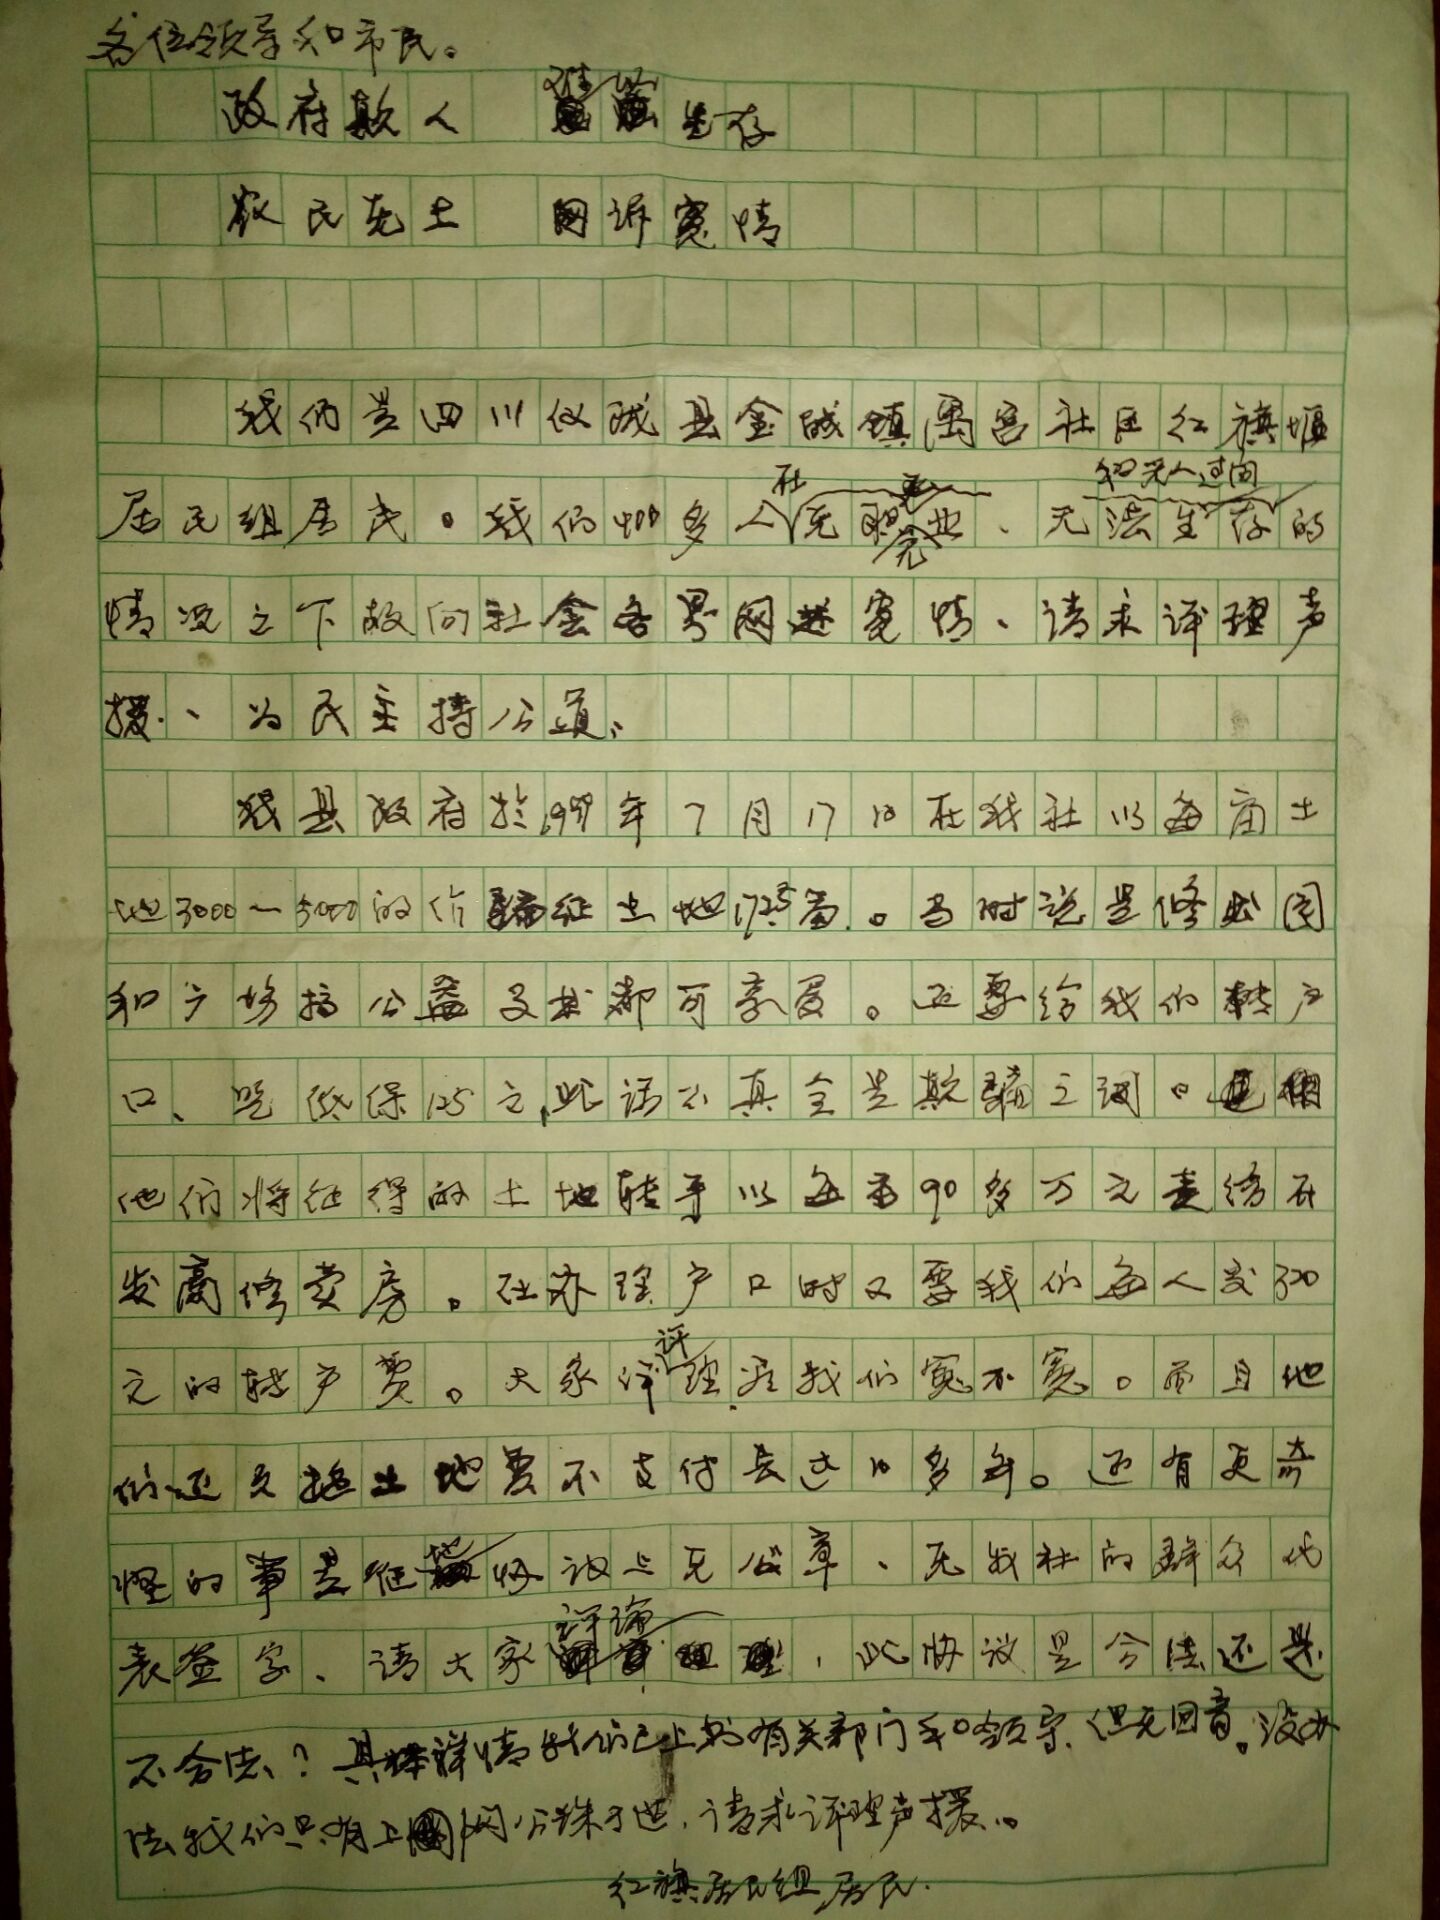 各位领导和市民。
政府欺人 难以生存
农民无土 网诉冤情
我们是四川仪陇县金城镇禹宫社区红旗堰
居民组居民。我们400多人在无职无业、无法生存和无人过问的
情况之下故向社会各界网述冤情、请求评理声
援、为民主持公道、
我县政府于1997年7月17日在我社以每亩土
地3000~5000的价骗征土地172.5亩。当时说是修公园
和广场搞公益文书都可享受。还要给我们转户
口、吃低保125元,此话不真全是欺骗之词。
他们将征得的土地转手以每亩90多万元卖给开
发商修卖房。在办理户口时又要我们每人交320
元的转户费。大家评评理看我们冤不冤。而且他
们还克扣土地费不支付长达10多年。还有更奇
怪的事是征地协议上无公章、无我社的群众代
表签字、请大家评论,此协议是合法还是
不合法?具体详情我们已上书有关部门和领导、但无回音。没办
法我们只有上网公诸于世,请求评理声援。
红旗居民组居民.